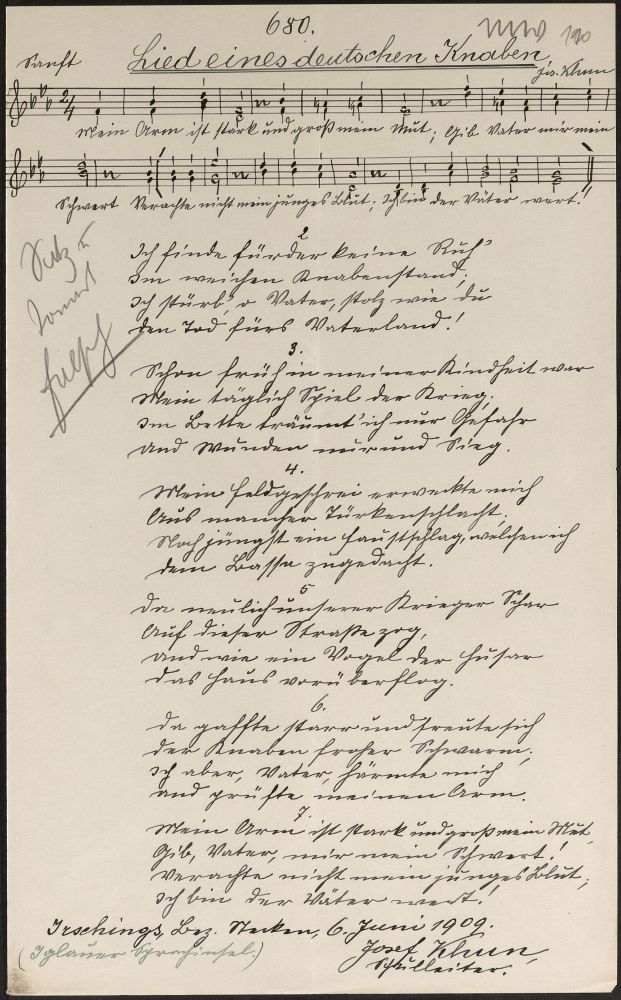 680.
190
Sanft Lied eines deutschen Knaben
Jos. Khun
2/4
Mein Arm ist stark und groß mein Mut; Gib Vater mir mein
Schwert Verachte nicht mein junges Blut; Ich bin der Väter wert!
Satz
falsch
2
Ich finde fürder keine Ruh'
Im weichen Knabenstand;
Ich stürb', o Vater, stolz wie du
Den Tod fürs Vaterland!
3.
Schon früh in meiner Kindheit war
Mein täglich Spiel der Krieg.
Im Bette träumt' ich nur Gefahr
und Wunden nur und Sieg.
4.
Mein Feldgeschrei erweckte mich
Aus mancher Türkenschlacht.
Noch jüngst ein Faustschlag, welchen ich
dem Bassa zugedacht.
5
Da neulich unserer Krieger Schar
Auf dieser Straße zog,
und wie ein Vogel der Husar
das Haus vorüberflog.
6.
da gaffte starr und freute sich
der Knaben froher Schwarm;
Ich aber, Vater, härmte mich
und prüfte meinen Arm.
7.
Mein Arm ist stark und groß mein Mut
Gib, Vater, mir mein Schwert!
Verachte nicht mein junges Blut;
Ich bin der Väter wert!
Irschings, Bez. Stecken, 6. Juni 1909.
(Iglauer Sprachinsel.) Josef Khun,
Schulleiter.